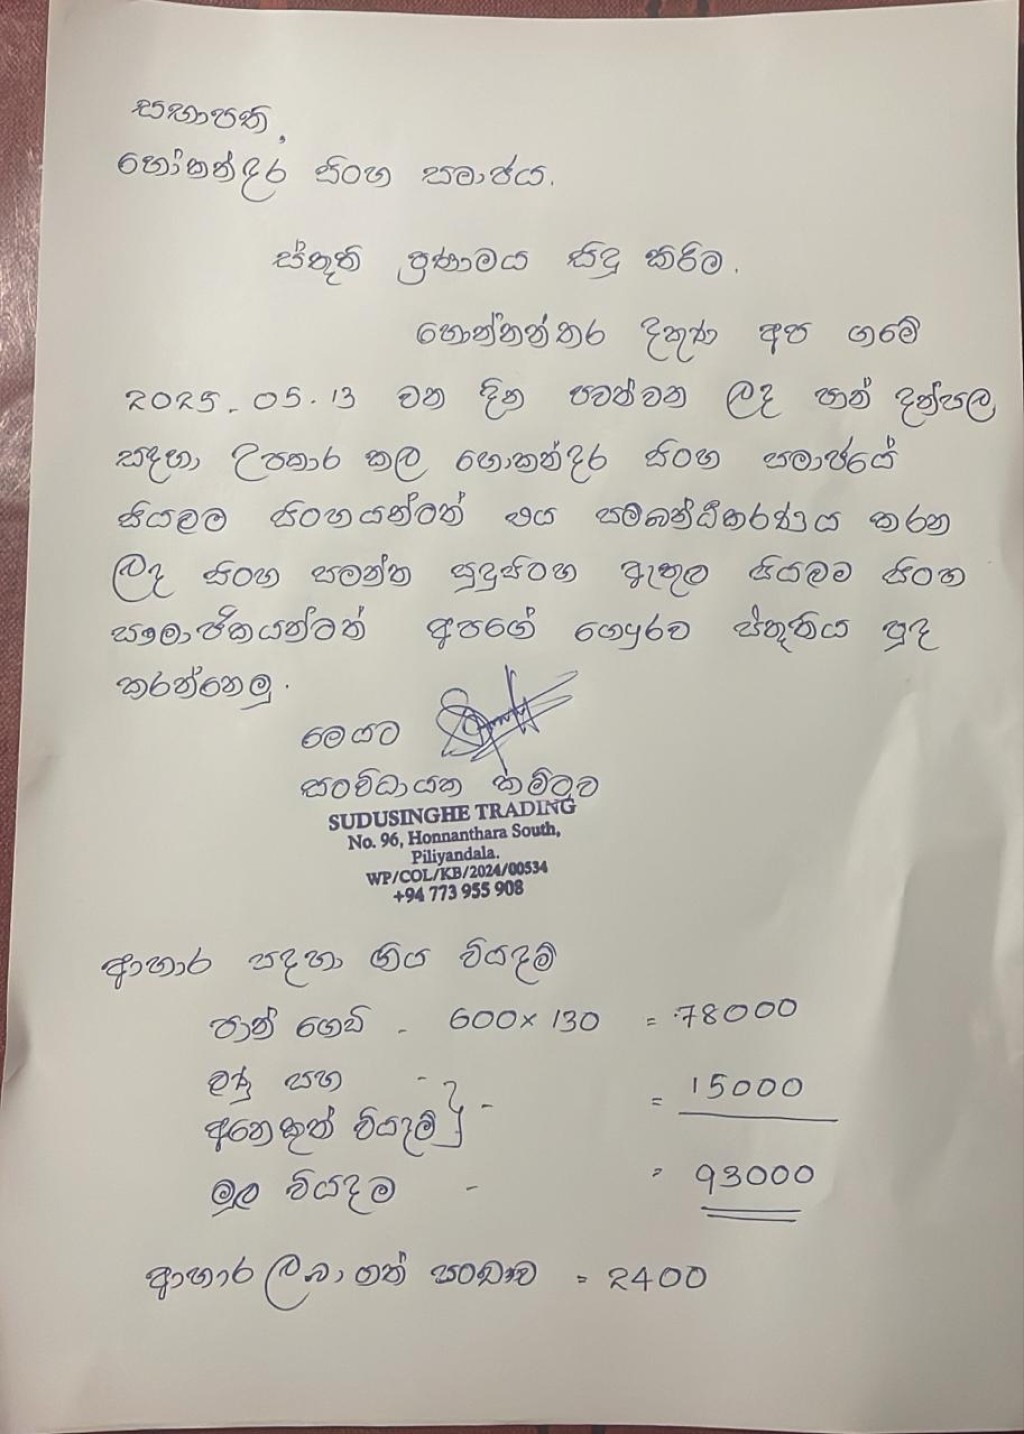 සභාපති,
හෝකන්දර සිංහ සමාජය.
ස්තූති ප්‍රණාමය සිදු කිරිම.
හොන්නන්තර දකුණ අප ගමේ
2025.05.13 වන දින පවත්වන ලද පාන් දන්සල
සඳහා උපකාර කල හොකන්දර සිංහ සමාජයේ
සියළුම සිංහයන්ටත් එය සම්බන්ධීකරණය කරන
ලද සිංහ සමන්ත සුදුසිංහ ඇතුළු සියළුම සිංහ
සාමාජිකයන්ටත් අපගේ ගෞරව ස්තූතිය පුද
කරන්නෙමු.
මෙයට
සංවිධායක කමිටුව
SUDUSINGHE TRADING
No. 96, Honnanthara South,
Piliyandala.
WP/COL/KB/2024/00534
+94 773 955 908
ආහාර සඳහා ගිය වියදම්
පාන් ගෙඩි - 600 × 130 = 78000
සහ -
අනෙකුත් වියදම් - = 15000
මුලු වියදම - = 93000
ආහාර ලබා ගත් සංඛ්‍යාව = 2400